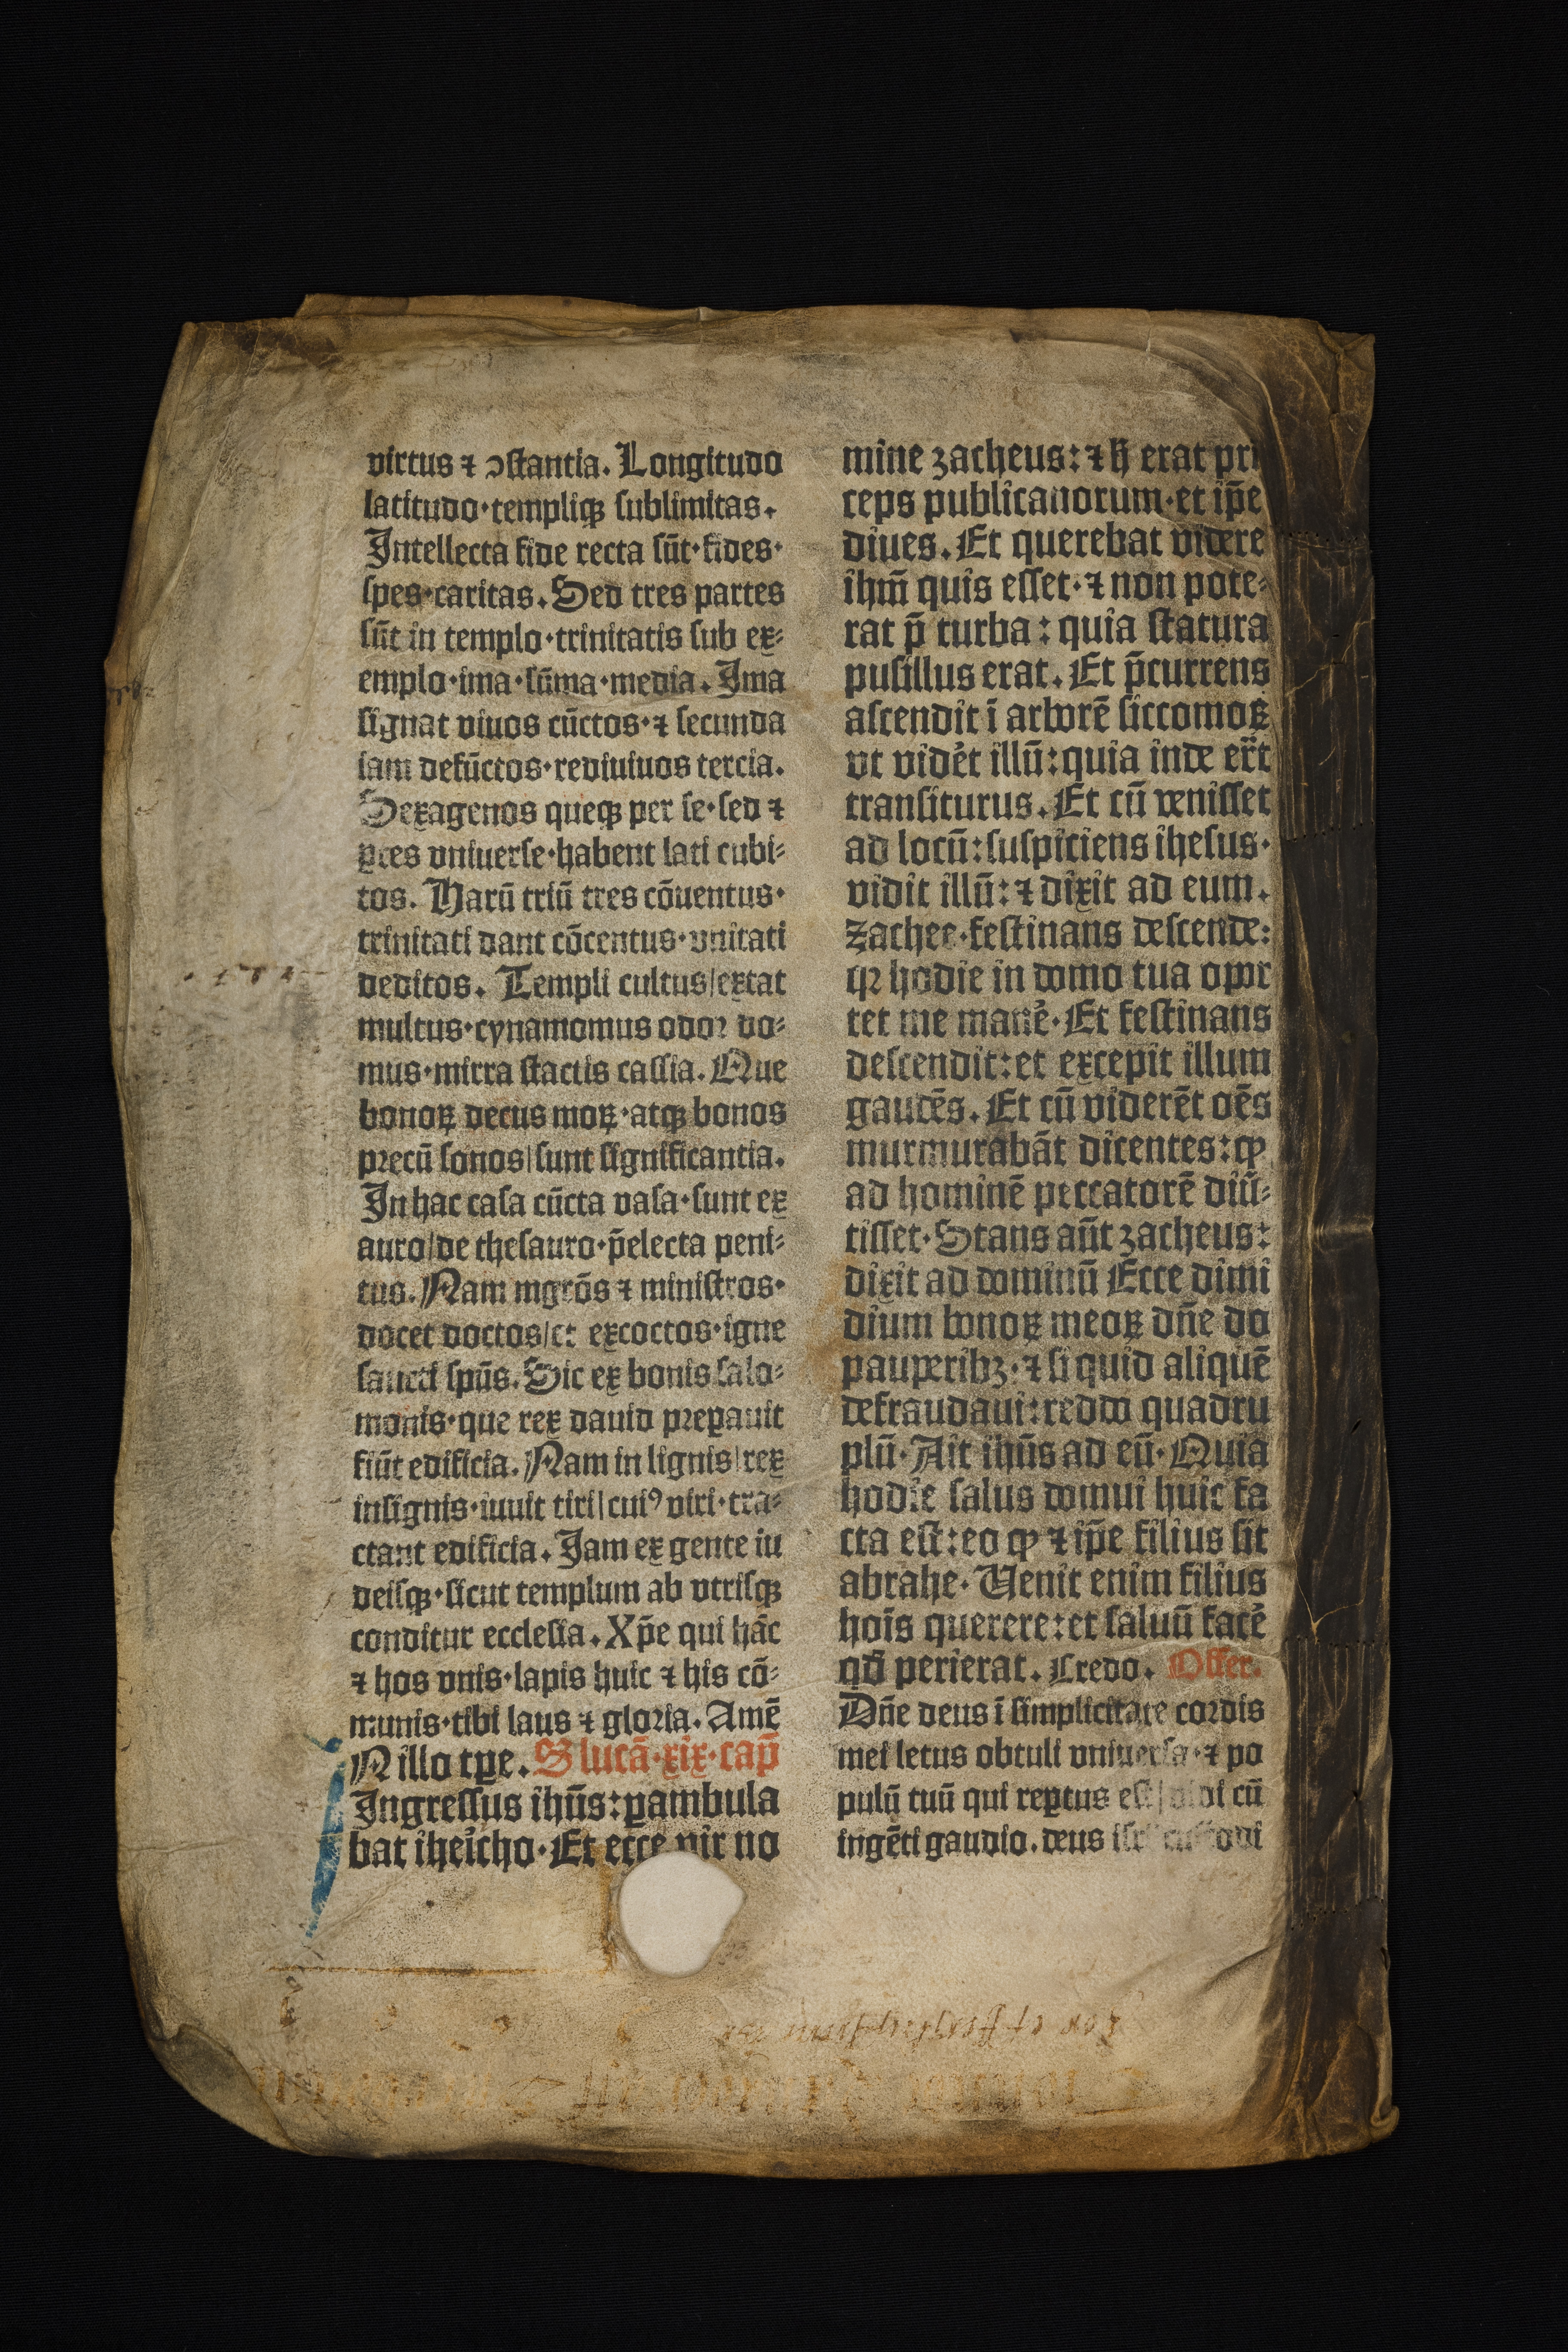 virtus ⁊ ↄſtantia. Longitudo
latitudo·templiqꝫ ſublimitas.
Intellecta fide recta ſūt·fides·
ſpes·caritas. Sed tres partes
ſūt in templo·trinitatis ſub ex⸗
emplo·ima·ſūma·media. Ima
ſignat viuos cūctos·⁊ ſecunda
iam defūctos·rediuiuos tercia.
Sexagenos queqꝫ per ſe·ſed ⁊
ꝑtes vniuerſe·habent lati cubi⸗
tos. Harū triū tres cōuentus·
trinitati dant cōcentus·vnitati
deditos. Templi cultus|extat
multus·cynamomus odoꝛ do⸗
mus·mirra ſtactis caſſia. Que
bonoꝝ decus moꝝ·atqꝫ bonos
pꝛecū ſonos|ſunt ſignificantia.
In hac caſa cūcta vaſa·ſunt ex
auro|de theſauro·p̄electa peni⸗
tus. Nam mgrōs ⁊ miniſtros·
docet doctos|et excoctos·igne
ſancti ſpūs. Sic ex bonis ſalo⸗
monis·que rex dauid pꝛeꝑauit
fiūt edificia. Nam in lignis|rex
inſignis·iuuit tiri|cuiꝰ viri·tra⸗
ctant edificia. Jam ex gente iu
deiſqꝫ·ſicut templum ab vtriſqꝫ
conditur eccleſia. Xp̄e qui hāc
⁊ hos vnis·lapis huic ⁊ his cō⸗
munis·tibi laus ⁊ gloꝛia. Amē
IN illo tꝑe. S lucā·xix·cap̄
Ingreſſus ihūs:ꝑambula
bat iheicho·Et ecce vir no
mine zacheus:⁊ h̄ erat pri
ceps publicanorum·et ip̄e
diues. Et querebat videre
ihm̄ quis eſſet·⁊ non pote⸗
rat p̄ turba: quia ſtatura
puſillus erat. Et p̄currens
aſcendit ī arborē ſiccomoꝝ
vt vidēt illū:quia inde er̄t
tranſiturus. Et cū veniſſet
ad locū:ſuſpiciens iheſus·
vidit illū:⁊ dixit ad eum.
Zachee·feſtinans deſcende:
qꝛ hodie in domo tua opor
tet me manē·Et feſtinans
deſcendit:et excepit illum
gaudēs. Et cū viderēt oēs
murmurabāt dicentes:ꝙ
ad hominē peccatorē diū⸗
tiſſet·Stans aūt zacheus:
dixit ad dominū Ecce dimi
dium bonoꝝ meoꝝ dn̄e do
pauperibꝫ·⁊ ſi quid aliquē
defraudaui:reddo quadru
plū·Ait ihūs ad eū·Quia
hodie ſalus domui huic fa
cta eſt:eo ꝙ ⁊ ip̄e filius ſit
abrahe·Venit enim filius
hoīs querere:et ſaluū facē
qd̄ perierat. Credo. Offer.
Dn̄e deus ī ſimplicitate coꝛdis
mei letus obtuli vniuerſa·⁊ po
pulū tuū qui reꝑtus eſt|vidi cū
ingēti gaudio. deus iſrl cuſtodi